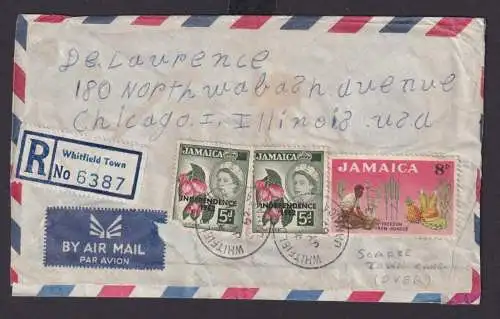 De.Laurence
180 North wabash avenue
Chicago.I. Illinois. usa
R
Whitfield Town
No 6387
JAMAICA
INDEPENDENCE
1962
5d
JAMAICA
INDEPENDENCE
1962
5d
JAMAICA 8d
FREEDOM
FROM HUNGER
WHITFIELD
WHITFIELD
BY AIR MAIL
PAR AVION
SCARCE
TOWN CANC
(OVER)